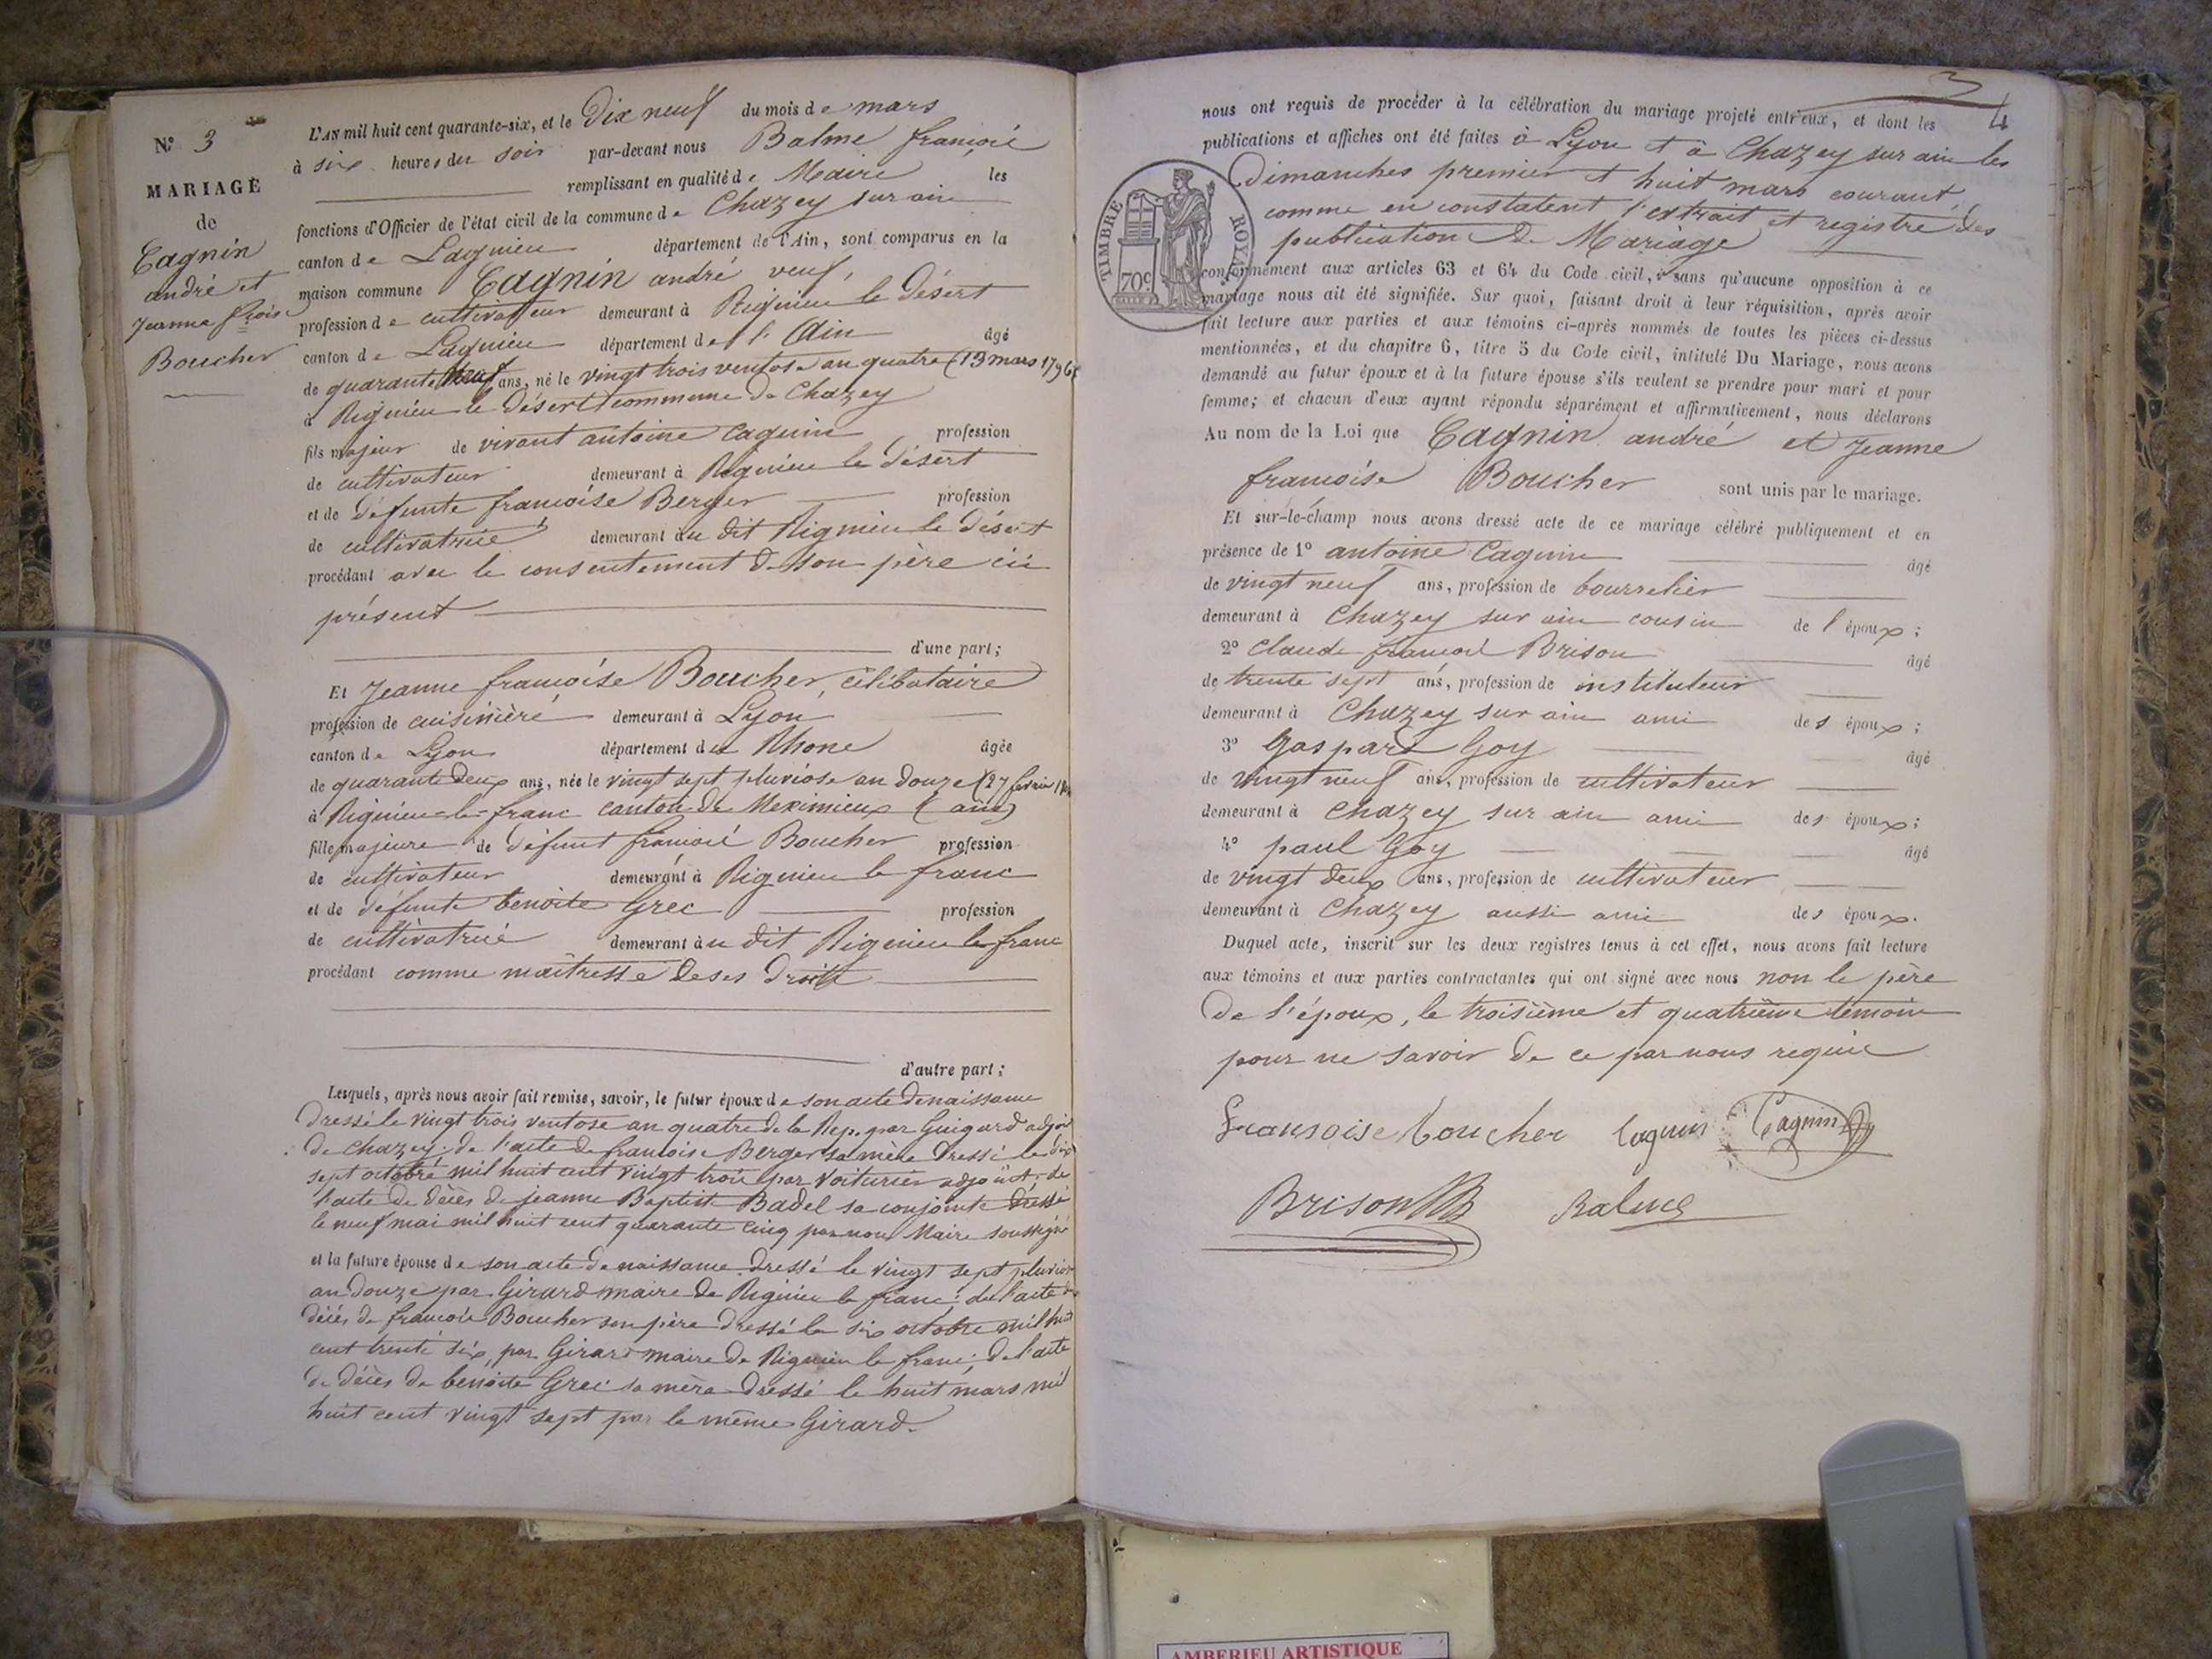 N.° 3
MARIAGE
de
Cagnin
andré et
Jeanne frçoise
Boucher
L'AN mil huit cent quarante-six, et le Dix neuf du mois de mars
à six heures du soir par-devant nous Balme françois
remplissant en qualité de Maire les
fonctions d'Officier de l'état civil de la commune de Chazey sur ain
canton de Lagnieu département de l'Ain, sont comparus en la
maison commune Cagnin andré veuf,
profession de cultivateur demeurant à Rignieu le Désert
canton de Lagnieu département de l'Ain âgé
de quarante neuf ans, né le vingt trois ventose an quatre (13 mars 1796)
à Rignieu le Désert commune de Chazey
fils majeur de vivant antoine Cagnin profession
de cultivateur demeurant à Rignieu le Désert
et de Défunte francoise Berger profession
de cultivatrice demeurant au dit Rignieu le Désert
procédant avec le consentement de son père ici
présent
d'une part;
Et Jeanne francoise Boucher, célibataire
profession de cuisinière demeurant à Lyon
canton de Lyon département du Rhone âgée
de quarante deux ans, née le vingt sept pluviose an Douze (27 fevrier
à Rignieu-le-franc canton de Meximieux (ain)
fille majeure de défunt françois Boucher profession
de cultivateur demeurant à Rignieu le franc
et de défunte benoite Grec profession
de cultivatrice demeurant au dit Rignieu le franc
procédant comme maitresse de ses Droits
d'autre part;
Lesquels, après nous avoir fait remise, savoir, le futur époux de son acte de naissance
Dressé le vingt trois ventose an quatre de la Rep. par Guigard adjoint
de Chazey; de l'acte de francoise Berger sa mère Dressé le dix
sept octobre mil huit cent vingt trois par Voiturier adjoint; de
l'acte de décès de jeanne Baptist Badel sa conjointe dressé
le neuf mai mil huit cent quarante cinq par nous Maire soussigné
et la future épouse de son acte de naissance dressé le vingt sept pluviose
an douze par Girard maire de Rignieu le franc; de l'acte de
décès de francois Boucher son père dressé le six octobre mil huit
cent trente six, par Girard maire de Rignieu le franc; de l'acte
de décès de benoite Grec sa mère dressé le huit mars mil
huit cent vingt sept par le même Girard.
3
4
nous ont requis de procéder à la célébration du mariage projeté entr'eux, et dont les
publications et affiches ont été faites à Lyon et à Chazey sur ain les
Dimanches premier et huit mars courant,
comme en constatent l'extrait et registre des
publication de Mariage
TIMBRE ROYAL
70c
conformément aux articles 63 et 64 du Code civil, sans qu'aucune opposition à ce
mariage nous ait été signifiée. Sur quoi, faisant droit à leur réquisition, après avoir
fait lecture aux parties et aux témoins ci-après nommés de toutes les pièces ci-dessus
mentionnées, et du chapitre 6, titre 5 du Code civil, intitulé Du Mariage, nous avons
demandé au futur époux et à la future épouse s'ils veulent se prendre pour mari et pour
femme; et chacun d'eux ayant répondu séparément et affirmativement, nous déclarons
Au nom de la Loi que Cagnin andré et Jeanne
francoise Boucher sont unis par le mariage.
Et sur-le-champ nous avons dressé acte de ce mariage célébré publiquement et en
présence de 1° antoine Cagnin âgé
de vingt neuf ans, profession de bourrelier
demeurant à Chazey sur ain cousin de l'époux;
2° Claude françois Brison âgé
de trente sept ans, profession de instituteur
demeurant à Chazey sur ain ami des époux;
3° Gaspard Goy âgé
de vingt neuf ans, profession de cultivateur
demeurant à Chazey sur ain ami des époux;
4° paul Goy âgé
de vingt deux ans, profession de cultivateur
demeurant à Chazey aussi ami des époux.
Duquel acte, inscrit sur les deux registres tenus à cet effet, nous avons fait lecture
aux témoins et aux parties contractantes qui ont signé avec nous non le père
De l'époux, le troisième et quatrième témoin
pour ne savoir de ce par nous requis
Fransoise boucher Cagnin Cagnin
Brison Balme
AMBERIEU ARTISTIQUE